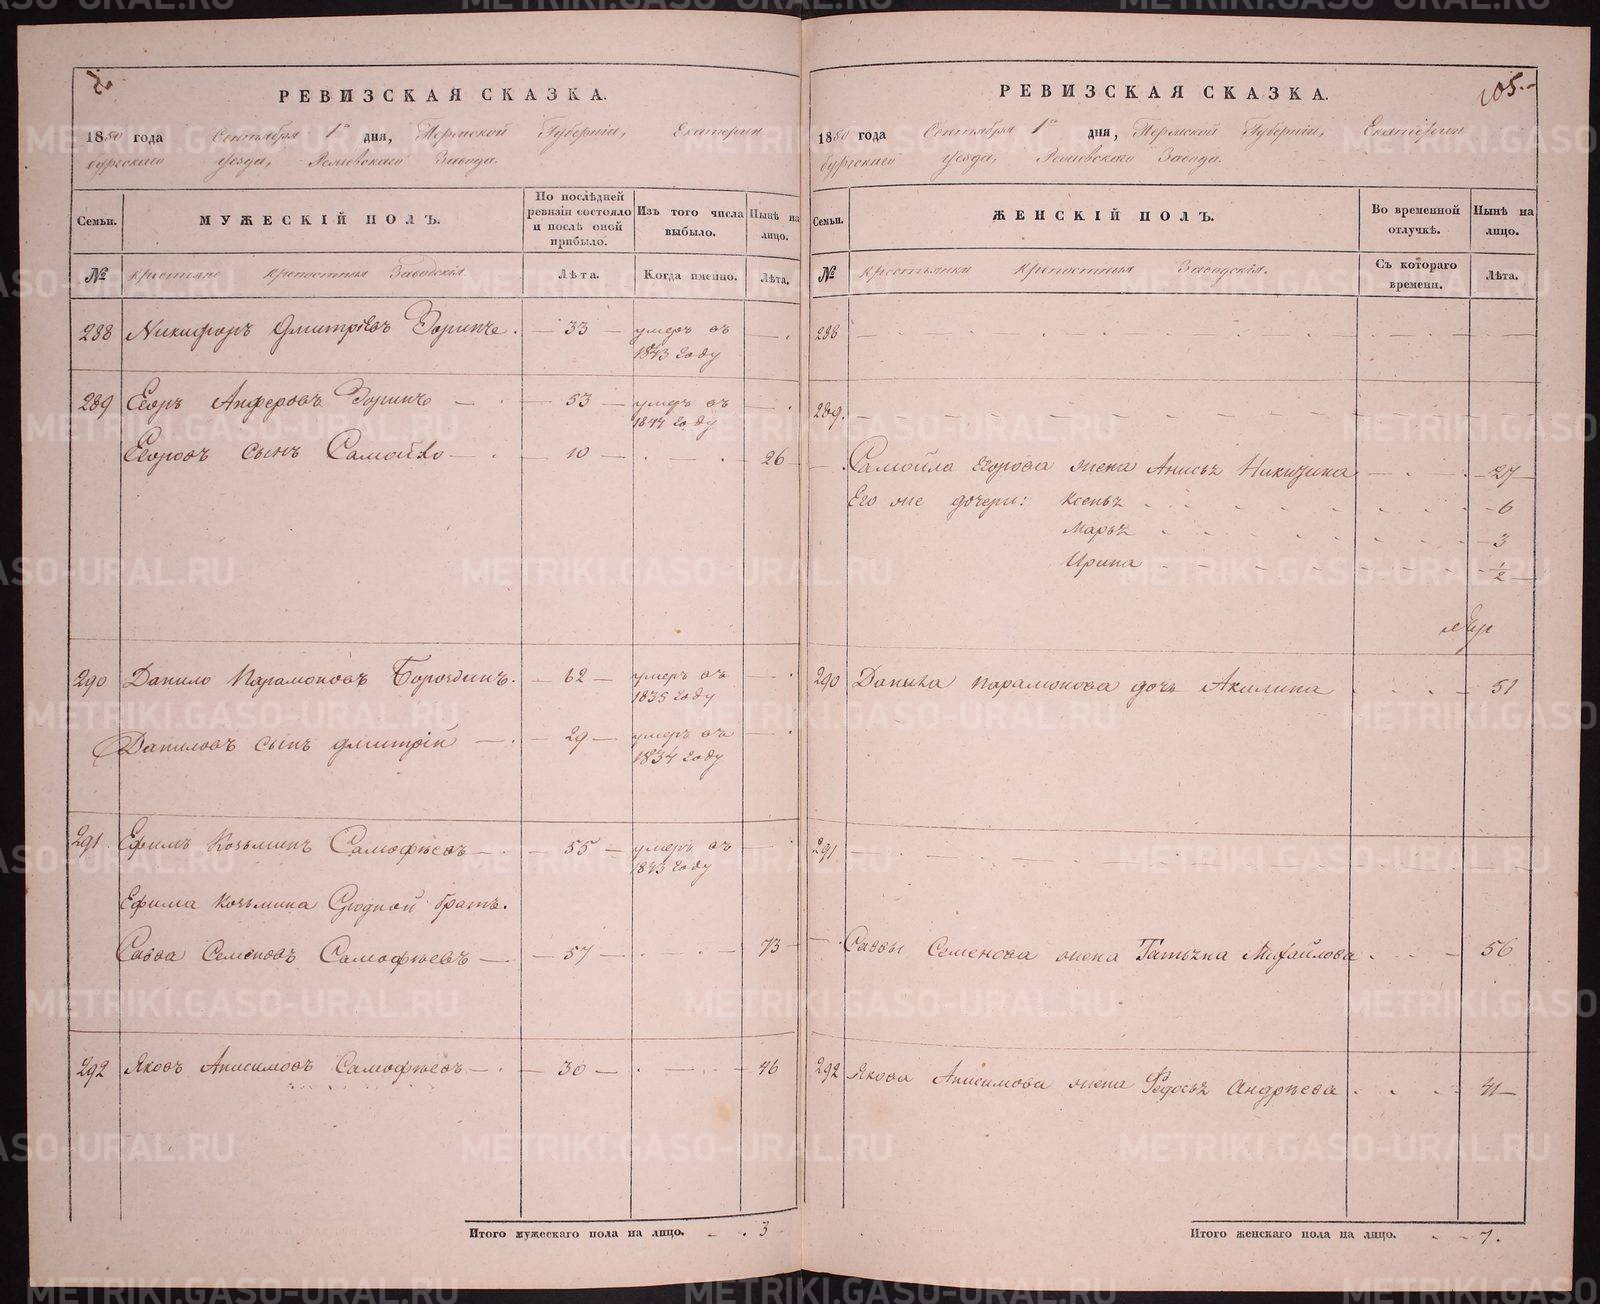 РЕВИЗСКАЯ СКАЗКА.
1850 года Сентября 1го дня, Пермской Губернiи, Екатерин
бургскаго уезда, Режевскаго Завода.
Семьи.
МУЖЕСКIЙ ПОЛЪ.
По послѣдней ревизiи состояло и послѣ оной прибыло.
Изъ того числа выбыло.
Нынѣ на лицо.
№
крестьяне крепостныя Заводскiя.
Лѣта.
Когда именно.
Лѣта.
288 Никифоръ Дмитрiевъ Зоринъ. — 33 — умеръ въ
1843 году
289 Егоръ Анферовъ Зоринъ — 53 — умеръ въ
1844 году
Егоровъ сынъ Самойло — 10 — 26
290 Данило Парамоновъ Бороздинъ. — 62 — умеръ въ
1835 году
Даниловъ сынъ Дмитрiй — 29 — умеръ въ
1834 году
291 Ефимъ Козьминъ Самофѣевъ — 55 — умеръ въ
1843 году
Ефима Козьмина Сродной братъ.
Савва Семеновъ Самофѣевъ — 57 — 73
292 Яковъ Анисимовъ Самофѣевъ — 30 — 46
Итого мужескаго пола на лицо. 3
105.
РЕВИЗСКАЯ СКАЗКА.
1850 года Сентября 1го дня, Пермской Губернiи, Екатерин
бургскаго уезда, Режевскаго Завода.
Семьи.
ЖЕНСКIЙ ПОЛЪ.
Во временной отлучкѣ.
Нынѣ на лицо.
№
крестьянки крепостныя Заводскiя.
Съ котораго времени.
Лѣта.
288
289.
Самойла Егорова жена Анисья Никитина — 27
Его же дочери: Ксенья 6
Марья 3
Ирина 1/2
290 Данила Парамонова дочь Акилина 51
291
Саввы Семенова жена Татьяна Михайлова 56
292 Якова Анисимова жена Федосья Андрѣева 41
Итого женскаго пола на лицо. 7.
METRIKI.GASO-URAL.RU